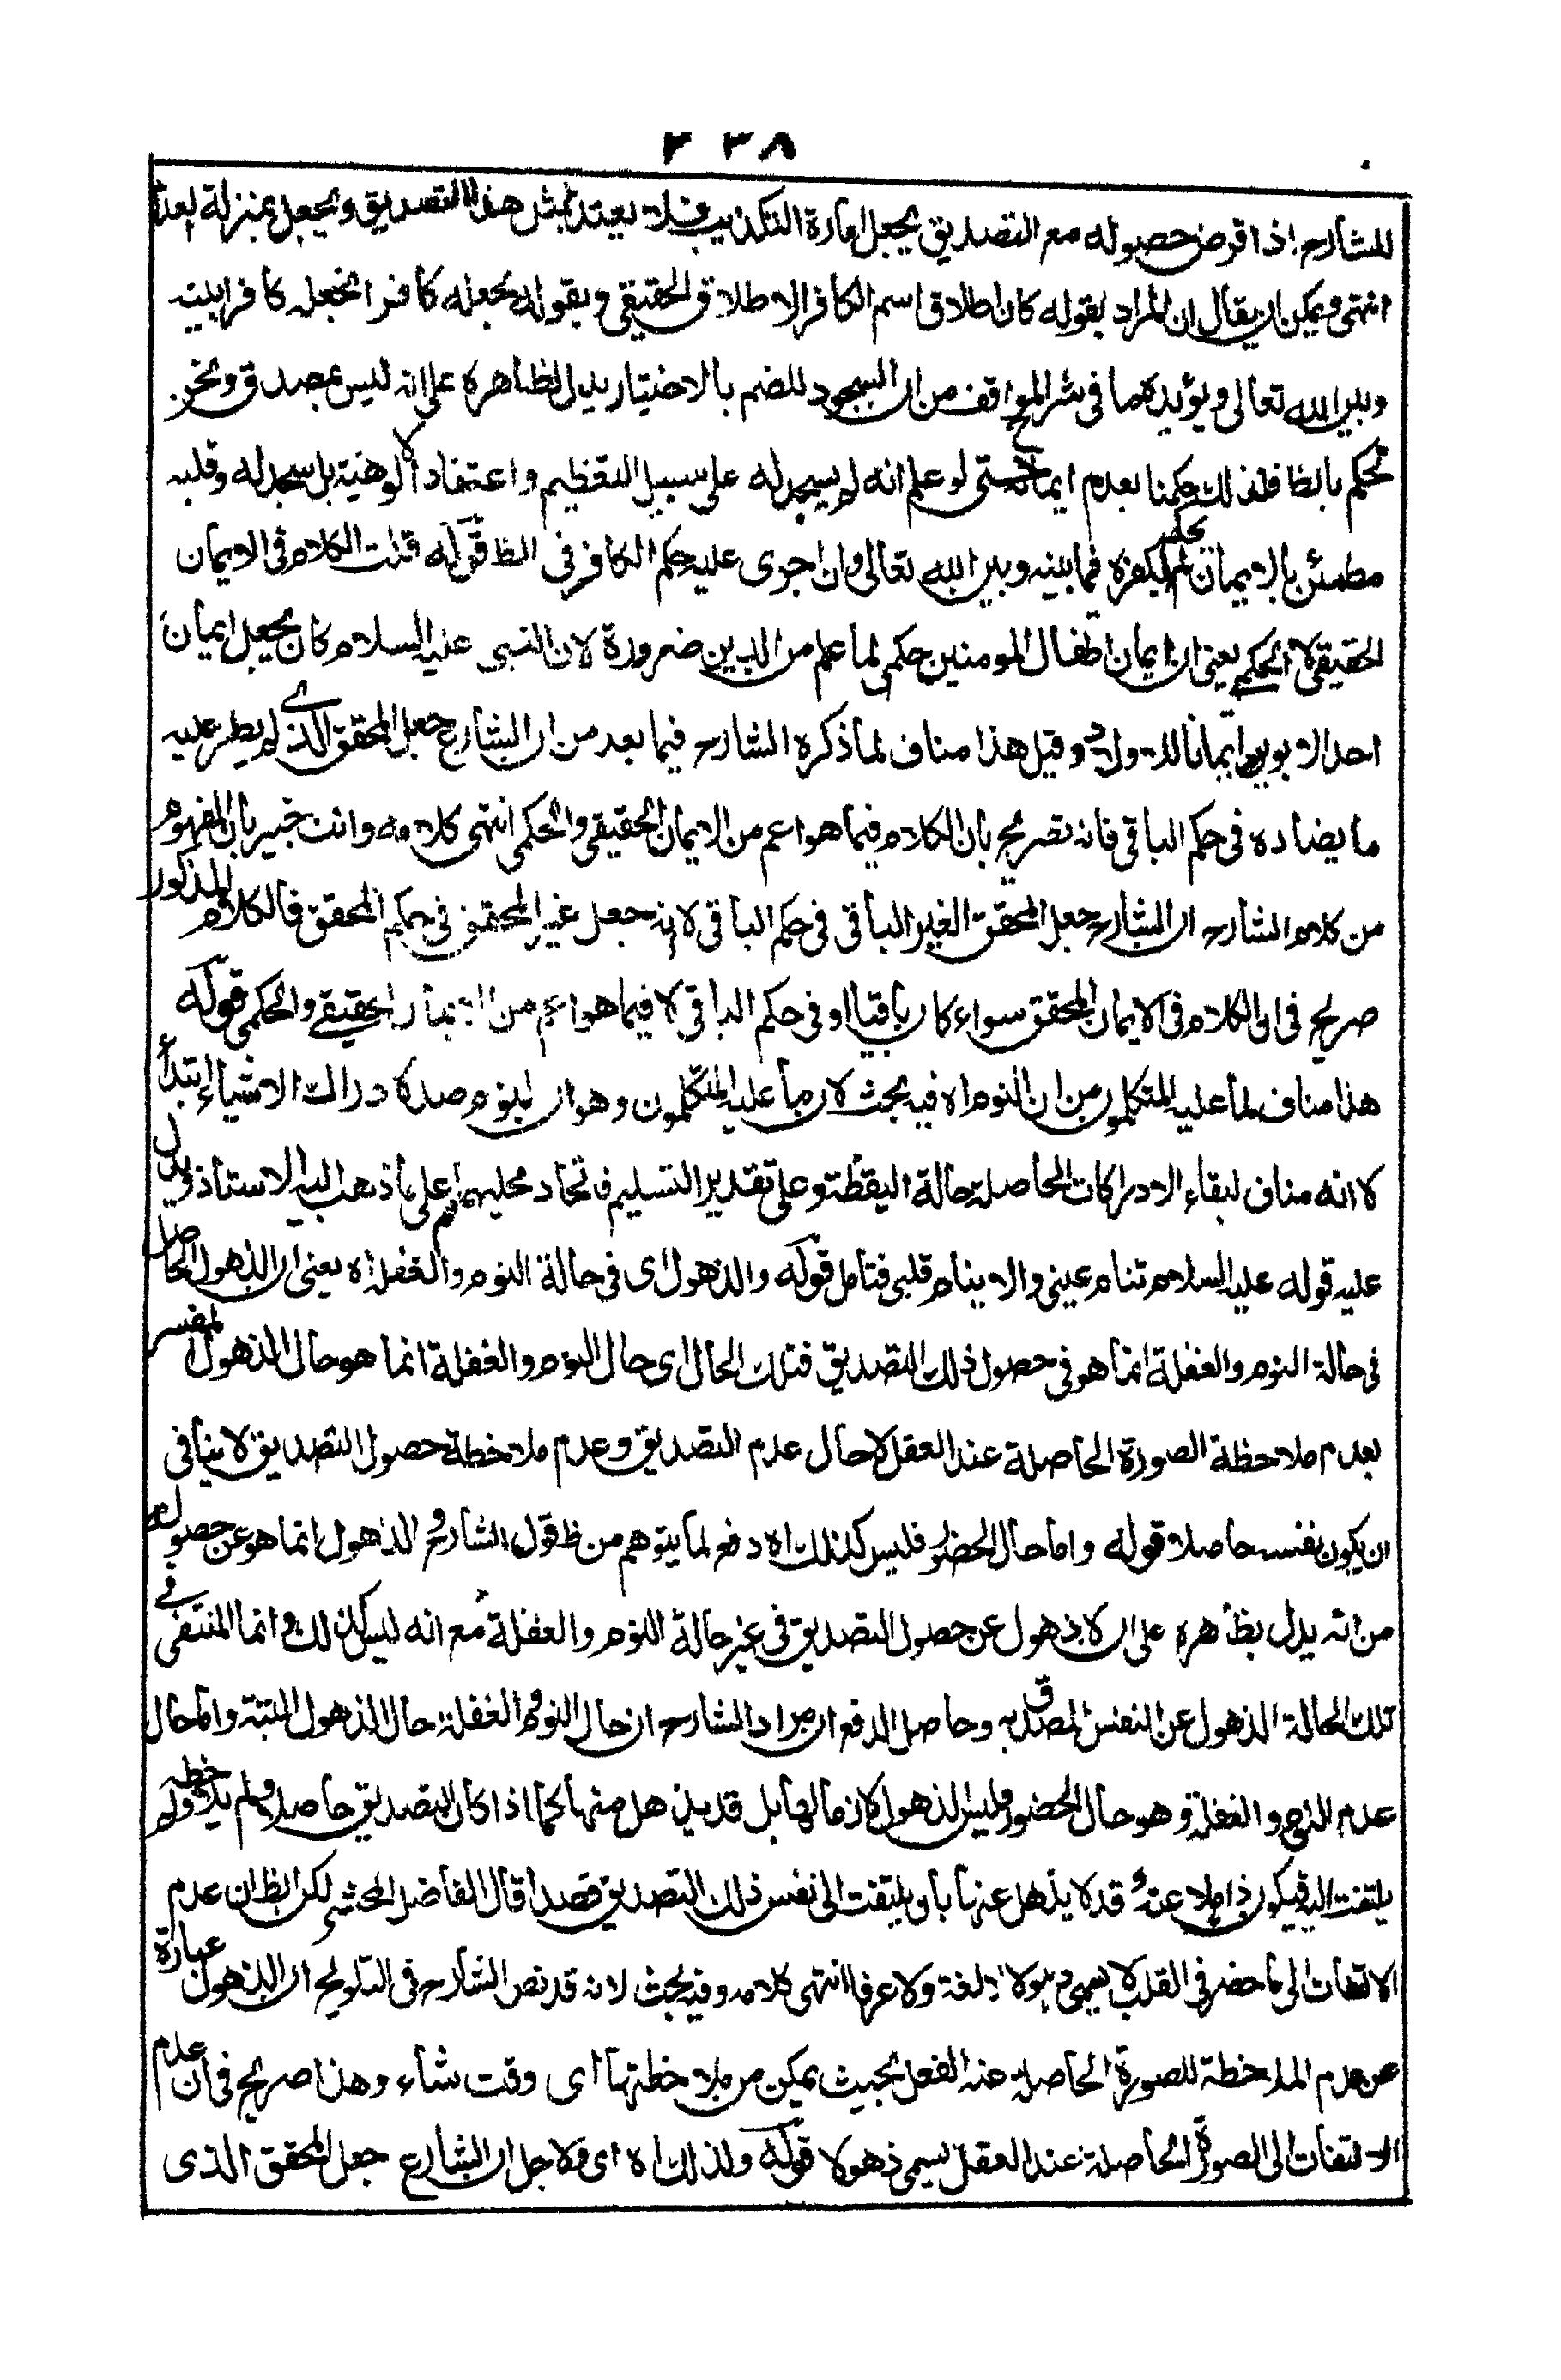 ٢٣٨
للشارح اذا فرض حصوله مع التصديق يجعل امارة التكذيب فلا يعتد بمثل هذا التصديق ويجعل بمنزلة العدم
انتهى ويمكن ان يقال ان المراد بقوله كان اطلاق اسم الكافر الاطلاق الحقيقي وبقوله نجعله كافرا نجعله كافرا بينه
وبين الله تعالى ويؤيده ما في شرح المواقف من ان السجود للصنم بالاختيار يدل بظاهره على انه ليس بمصدق ونحن
نحكم بالظ فلذلك حكمنا بعدم ايمانه حتى لو علم انه لم يسجد له على سبيل التعظيم واعتقاد الالوهية بل سجد له وقلبه
مطمئن بالايمان لم يحكم بكفره فيما بينه وبين الله تعالى وان اجرى عليه حكم الكافر في الظ قوله قلت الكلام في الايمان
الحقيقي لا الحكمي يعني ان ايمان اطفال المومنين حكمي لما علم من الدين ضرورة لان النبي عليه السلام كان يجعل ايمان
احد الابوين ايمانا للاولاد وقيل هذا مناف لما ذكره الشارح فيما بعد من ان الشارع جعل المحقق الذي لم يطرء عليه
ما يضاده في حكم الباقي فانه تصريح بان الكلام فيما هو اعم من الايمان الحقيقي والحكمي انتهى كلامه وانت خبير بان المفهوم
من كلام الشارح ان الشارح جعل المحقق الغير الباقي في حكم الباقي لا انه جعل غير المحقق في حكم المحقق فالكلام المذكور
صريح في ان الكلام في الايمان المحقق سواء كان باقيا او في حكم الباقي لا فيما هو اعم من الايمان الحقيقي والحكمي قوله
هذا مناف لما عليه المتكلمون من ان النوم اه فيه بحث لان ما عليه المتكلمون وهو ان النوم ضد لادراك الاشياء ابتداء
لا انه مناف لبقاء الادراكات الحاصلة حالة اليقظة وعلى تقدير التسليم فاتحاد محليهما مم على ما ذهب اليه الاستاذ ويدل
عليه قوله عليه السلام تنام عيني ولا ينام قلبي فتامل قوله والذهول اى في حالة النوم والغفلة اه يعني ان الذهول الحاصل
في حالة النوم والغفلة انما هو في حصول ذلك التصديق فتلك الحال اى حال النوم والغفلة انما هو حال الذهول المفسر
بعدم ملاحظة الصورة الحاصلة عند العقل لا حال عدم التصديق وعدم ملاحظة حصول التصديق لا ينافي
ان يكون بنفسه حاصلا قوله واما حال الحضور فليس كذلك اه دفع لما يتوهم من ظ قول الشارح والذهول انما هو عن حصوله
من انه يدل بظاهره على ان لا ذهول عن حصول التصديق في غير حالة النوم والغفلة مع انه ليس كذلك وانما المنتفى في
تلك الحالة الذهول عن النفس المصدق به وحاصل الدفع ان مراد الشارح ان حال النوم والغفلة حال الذهول البتة واما حال
عدم النوم والغفلة وهو حال الحضور فليس الذهول لازما لها بل قد يذهل منها كما اذا كان التصديق حاصلا ولم يلاحظه ولم
يلتفت اليه فيكون ذاهلا عنه وقد لا يذهل عنها بان يلتفت الى نفس ذلك التصديق قصدا قال الفاضل المحشي لكن الظ ان عدم
الالتفات الى ما حضر في القلب لا يسمى ذهولا لا لغة ولا عرفا انتهى كلامه وفيه بحث لانه قد نص الشارح في التلويح ان الذهول عبارة
عن عدم الملاحظة للصورة الحاصلة عند العقل بحيث يمكن من ملاحظتها اى وقت شاء وهذا صريح في ان عدم
الالتفات الى الصورة الحاصلة عند العقل يسمى ذهولا قوله ولذلك اه اى ولاجل ان الشارع جعل المحقق الذى